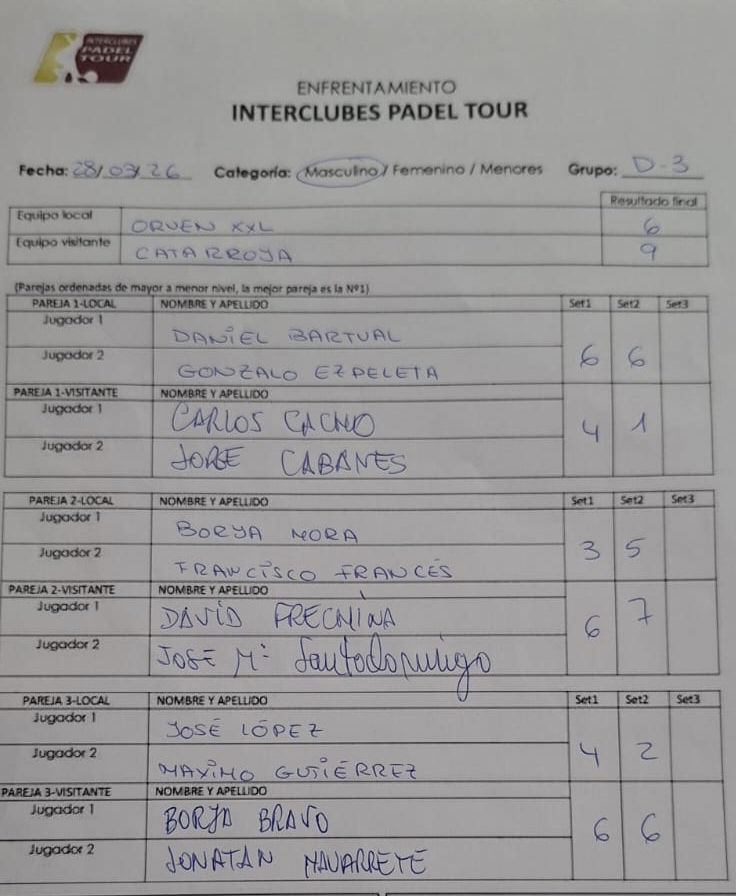 INTERCLUBES
PADEL
TOUR
ENFRENTAMIENTO
INTERCLUBES PADEL TOUR
Fecha: 28/03/26 Categoría: Masculino / Femenino / Menores Grupo: D-3
Resultado final
Equipo local ORVEN XXL 6
Equipo visitante CATARROJA 9
(Parejas ordenadas de mayor a menor nivel, la mejor pareja es la Nº1)
PAREJA 1-LOCAL NOMBRE Y APELLIDO Set1 Set2 Set3
Jugador 1 DANIEL BARTUAL
Jugador 2 GONZALO EZPELETA 6 6
PAREJA 1-VISITANTE NOMBRE Y APELLIDO
Jugador 1 CARLOS CACHO 4 1
Jugador 2 JORGE CABANES
PAREJA 2-LOCAL NOMBRE Y APELLIDO Set1 Set2 Set3
Jugador 1 BORJA MORA
Jugador 2 FRANCISCO FRANCÉS 3 5
PAREJA 2-VISITANTE NOMBRE Y APELLIDO
Jugador 1 DAVID FRECHINA 6 7
Jugador 2 JOSE Mª Santodomingo
PAREJA 3-LOCAL NOMBRE Y APELLIDO Set1 Set2 Set3
Jugador 1 JOSÉ LÓPEZ
Jugador 2 MAXIMO GUTIÉRREZ 4 2
PAREJA 3-VISITANTE NOMBRE Y APELLIDO
Jugador 1 BORJA BRAVO 6 6
Jugador 2 JONATAN NAVARRETE